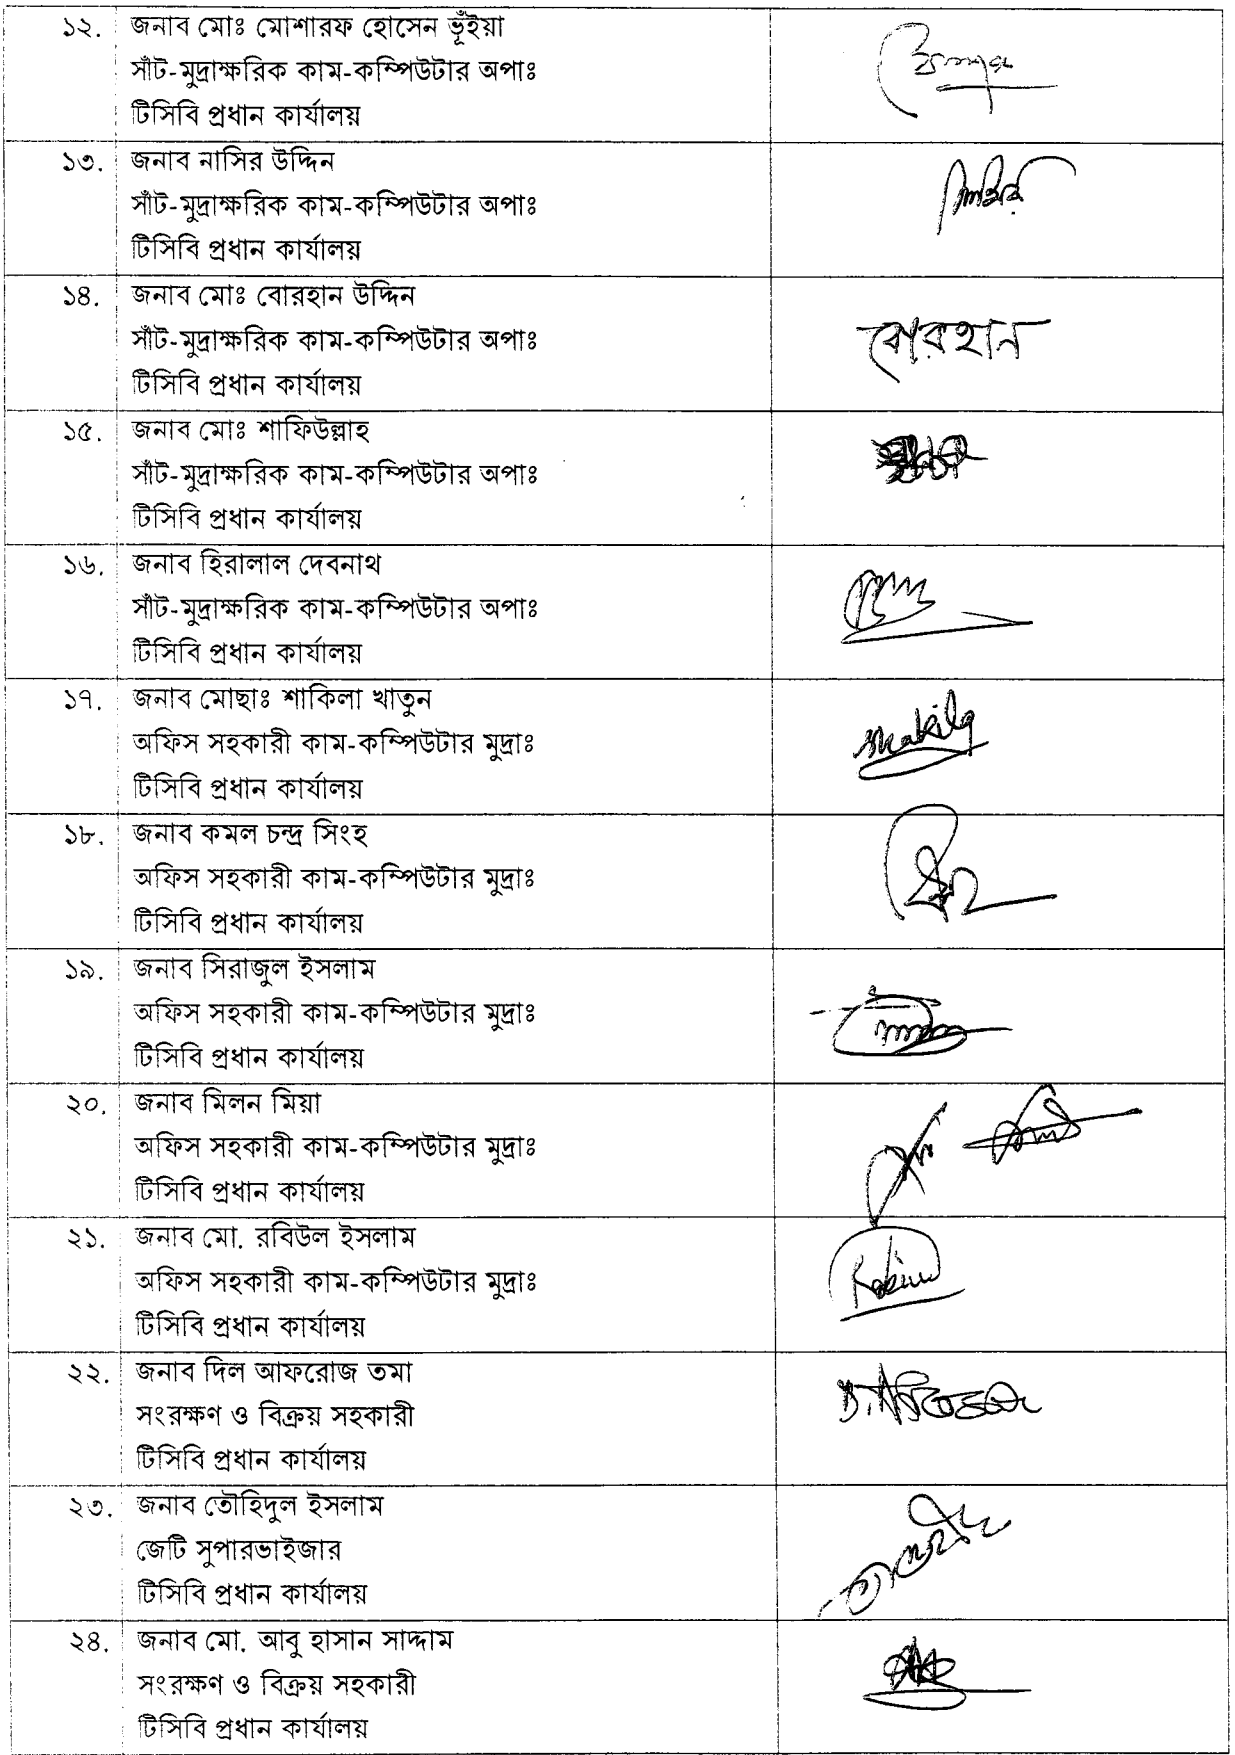 ১২. জনাব মোঃ মোশারফ হোসেন ভূঁইয়া
সাঁট-মুদ্রাক্ষরিক কাম-কম্পিউটার অপাঃ
টিসিবি প্রধান কার্যালয়
১৩. জনাব নাসির উদ্দিন
সাঁট-মুদ্রাক্ষরিক কাম-কম্পিউটার অপাঃ
টিসিবি প্রধান কার্যালয়
১৪. জনাব মোঃ বোরহান উদ্দিন
সাঁট-মুদ্রাক্ষরিক কাম-কম্পিউটার অপাঃ
বোরহান
টিসিবি প্রধান কার্যালয়
১৫. জনাব মোঃ শাফিউল্লাহ
সাঁট-মুদ্রাক্ষরিক কাম-কম্পিউটার অপাঃ
টিসিবি প্রধান কার্যালয়
১৬. জনাব হিরালাল দেবনাথ
সাঁট-মুদ্রাক্ষরিক কাম-কম্পিউটার অপাঃ
টিসিবি প্রধান কার্যালয়
১৭. জনাব মোছাঃ শাকিলা খাতুন
অফিস সহকারী কাম-কম্পিউটার মুদ্রাঃ
shakila
টিসিবি প্রধান কার্যালয়
১৮. জনাব কমল চন্দ্র সিংহ
অফিস সহকারী কাম-কম্পিউটার মুদ্রাঃ
টিসিবি প্রধান কার্যালয়
১৯. জনাব সিরাজুল ইসলাম
অফিস সহকারী কাম-কম্পিউটার মুদ্রাঃ
টিসিবি প্রধান কার্যালয়
২০. জনাব মিলন মিয়া
অফিস সহকারী কাম-কম্পিউটার মুদ্রাঃ
টিসিবি প্রধান কার্যালয়
২১. জনাব মো. রবিউল ইসলাম
অফিস সহকারী কাম-কম্পিউটার মুদ্রাঃ
টিসিবি প্রধান কার্যালয়
২২. জনাব দিল আফরোজ তমা
সংরক্ষণ ও বিক্রয় সহকারী
টিসিবি প্রধান কার্যালয়
২৩. জনাব তৌহিদুল ইসলাম
জেটি সুপারভাইজার
টিসিবি প্রধান কার্যালয়
২৪. জনাব মো. আবু হাসান সাদ্দাম
সংরক্ষণ ও বিক্রয় সহকারী
টিসিবি প্রধান কার্যালয়